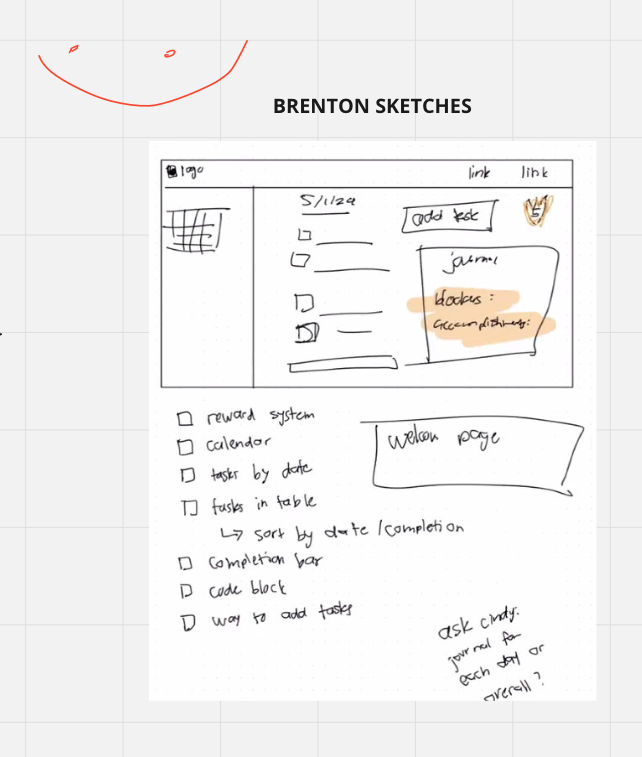 BRENTON SKETCHES
logo
link
link
5/1/24
add task
5
journal
blockers :
accomplishments:
reward system
calendar
tasks by date
tasks in table
↳ sort by date /completion
completion bar
code block
way to add tasks
page
ask cindy:
journal for
each day or
overall ?